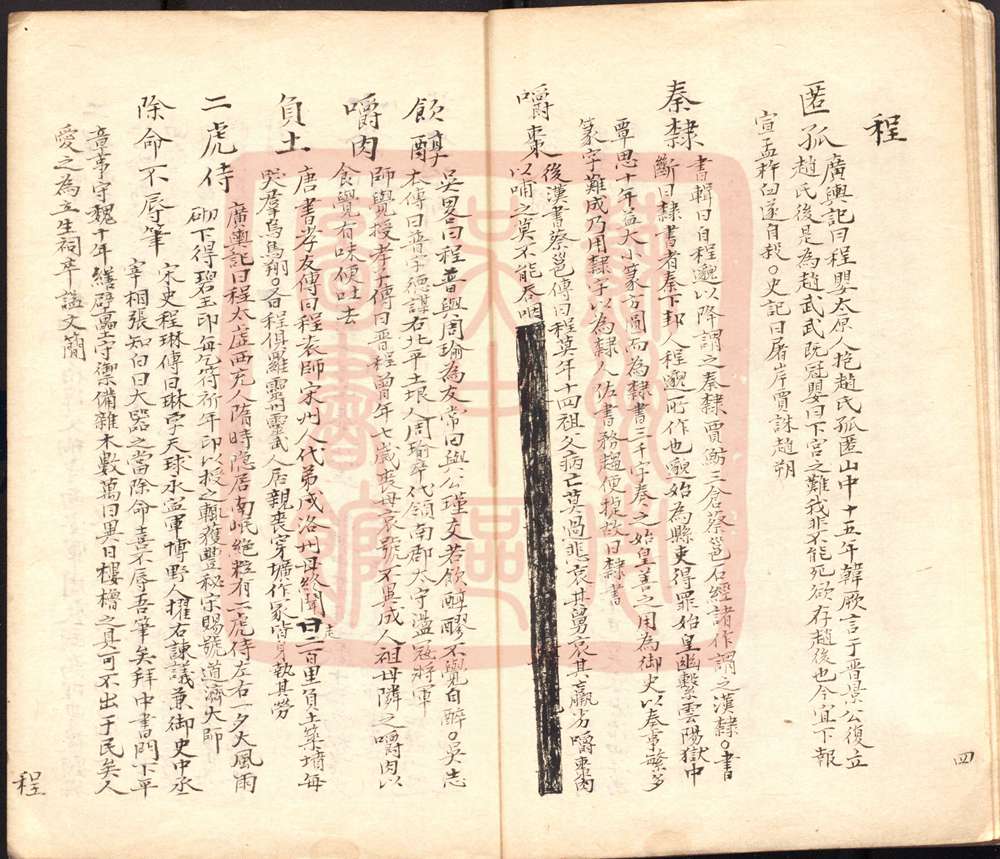 程
匿孤
廣輿記曰程嬰太原人抱趙氏孤匿山中十五年韓厥言于晋景公復立
趙氏後是為趙武武既冠嬰曰下宮之難我非不能死欲存趙後也今宜下報
宣孟杵臼遂自殺○史記曰屠岸賈誅趙朔
秦隸
書輯曰自程邈以降謂之秦隸賈魴三倉蔡邕石經諸作謂之漢隸○書
斷曰隸書者秦下邽人程邈所作也邈始為縣吏得罪始皇幽繫雲陽獄中
覃思十年益大小篆方圓而為隸書三千字奏之始皇善之用為御史以奏事繁多
篆字難成乃用隸字以為隸人佐書務趨便捷故曰隸書
嚼棗
後漢書蔡邕傳曰程莫年十四祖父病亡莫過悲哀其舅哀其羸劣嚼棗肉
以哺之莫不能吞咽
飲醇
吳畧曰程普與周瑜為友常曰與公瑾交若飲醇醪不覺自醉○吳志
本傳曰普字德謀右北平土垠人周瑜卒代領南郡太守盪寇將軍
嚼肉
師覺授孝子傳曰晋程曾年七歲喪母哀號不異成人祖母隣之嚼肉以
食覺有味便吐去
負土
唐書孝友傳曰程袁師宋州人代弟戍洛州母終聞日走二百里負土築墳每
哭羣烏鳥翔○合程俱羅靈州靈武人居親喪穿壙作冢皆身執其勞
二虎侍
廣輿記曰程太虛西充人隋時隱居南岷絶粒有二虎侍左右一夕大風雨
砌下得碧玉印每乞符祈年印以授之輒獲豐秘宗賜號道濟大師
除命不辱筆
宋史程琳傳曰琳字天球永寧軍博野人擢右諫議兼御史中丞
宰相張知白曰大器之當除命喜不辱吾筆矣拜中書門下平
章事守魏十年繕壁壘守禦備雜木數萬曰異日樓櫓之具可不出于民矣人
愛之為立生祠卒謚文簡
四
程